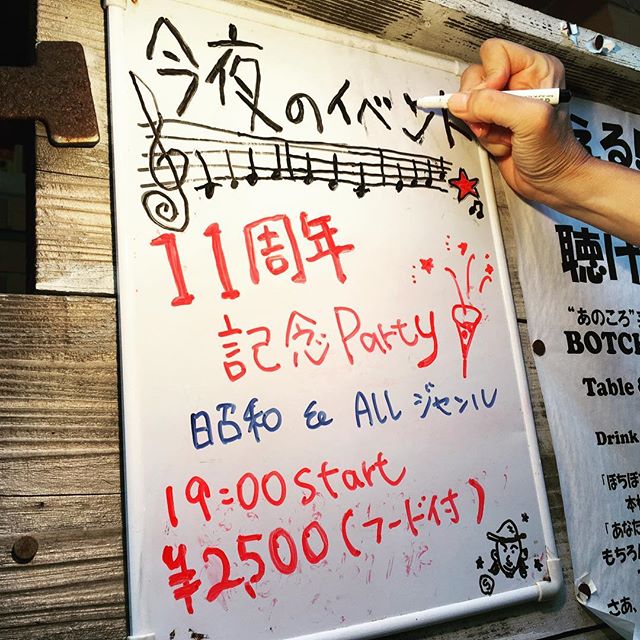 今夜のイベント
11周年
記念Party
昭和 & ALL ジャンル
19:00 start
¥2500(フード付)
える
聴け
"あのころ"
BOTCH
Table
Drink
「ぼちぼ
本
「あな
もちろ
さあ、